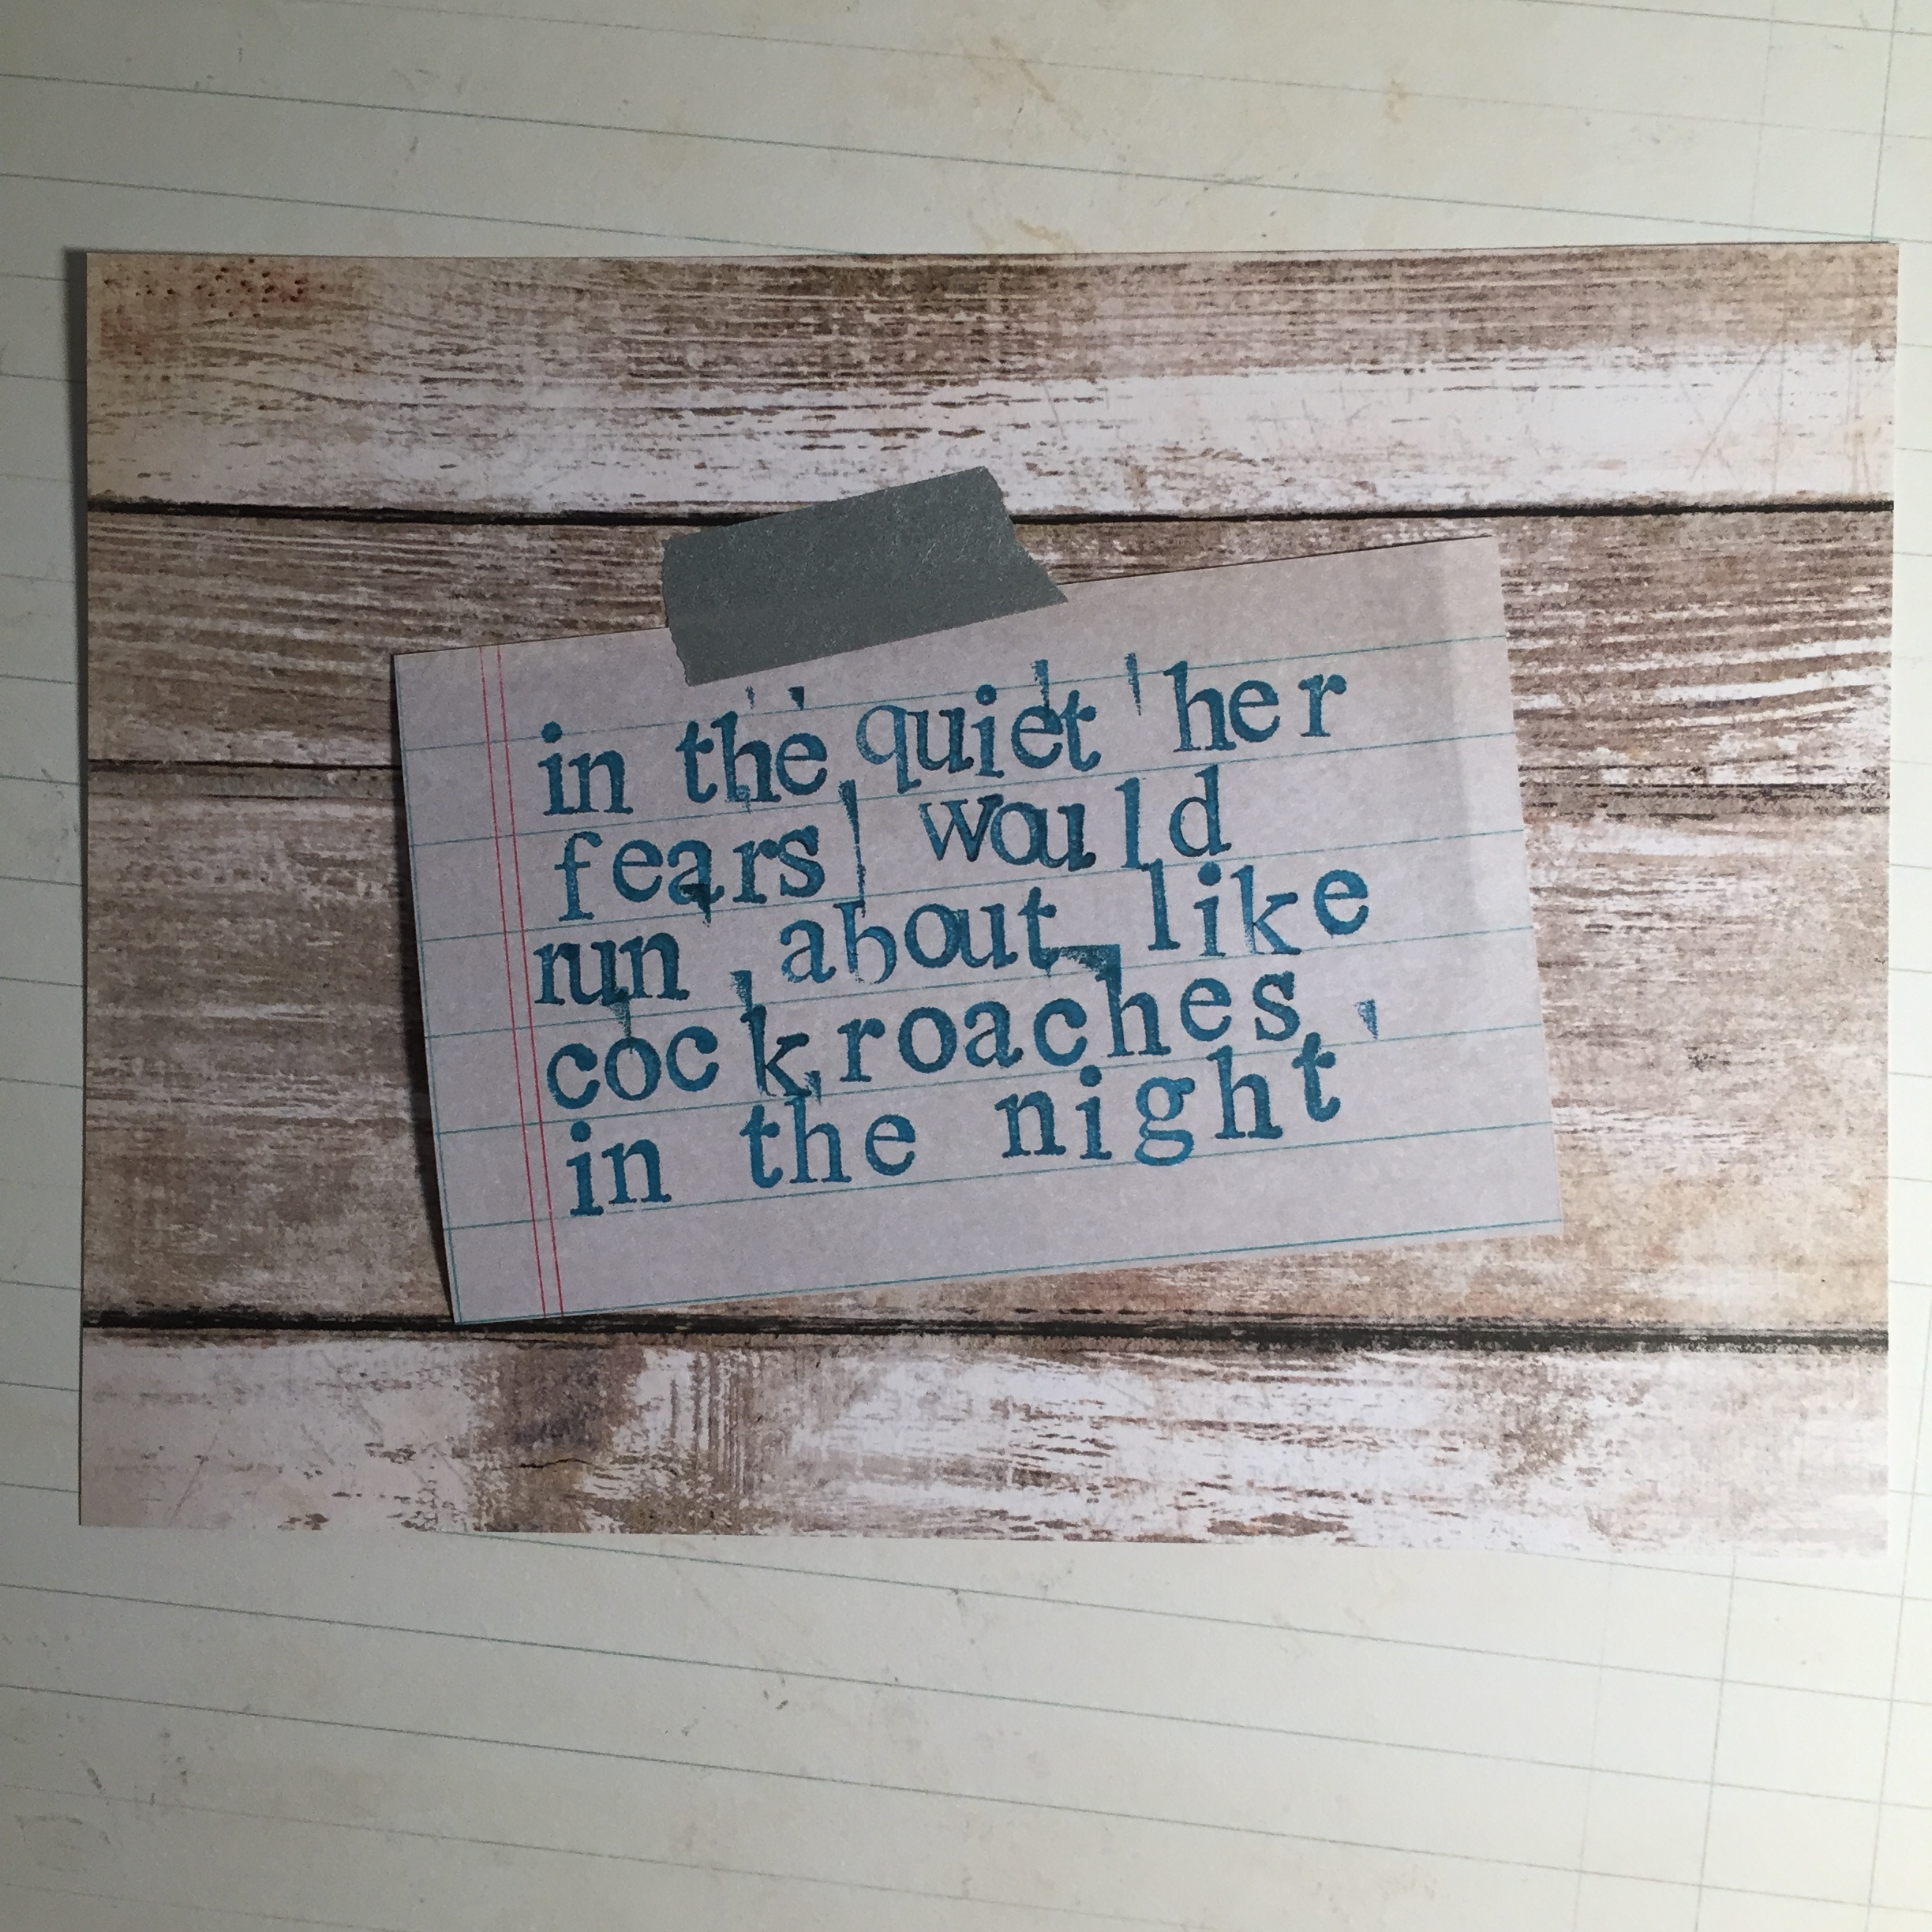 in the quiet her
fears would
run about like
cockroaches
in the night